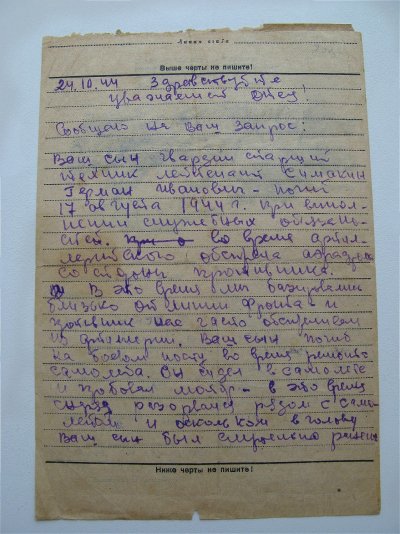 Линия сгиба
Выше черты не пишите!
24.10.44 Здравствуйте
уважаемый Отец!
Сообщаю на Ваш запрос:
Ваш сын гвардии старший
техник лейтенант Симакин
Герман Иванович – погиб
17 августа 1944 г. при выпол-
нении служебных обязанно-
стей. во время артил-
лерийского обстрела аэродрома
со стороны противника.
В это время мы базировались
близко от линии фронта – и
противник нас часто обстреливал
из артиллерии. Ваш сын погиб
на боевом посту во время ремонта
самолёта. Он сидел в самолёте
и пробовал мотор – в это время
снаряд разорвался рядом с само-
лётом и осколком в голову
Ваш сын был смертельно ранен
Ниже черты не пишите!